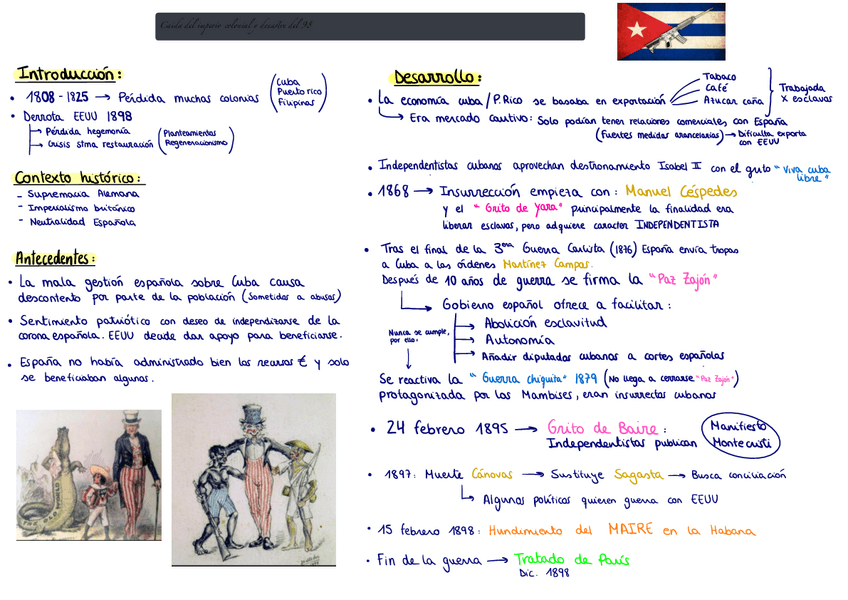 Caida del imperio colonial y desastre del 98
Introducción:
• 1808 - 1825 → Pérdida muchas colonias (Cuba
Puerto rico
Filipinas)
• Derrota EEUU 1898
→ Pérdida hegemonía
→ Crisis stma restauración (Planteamientos
Regeneracionismo)
Contexto histórico:
- Supremacia Alemana
- Imperialismo británico
- Neutralidad Española
Antecedentes:
• La mala gestión española sobre Cuba causa
descontento por parte de la población (Sometidos a abusos)
• Sentimiento patriótico con deseo de independizarse de la
corona española. EEUU decide dar apoyo para beneficiarse.
• España no había administrado bien los recursos € y solo
se beneficiaban algunos.
Desarrollo:
• La economía cuba/P.Rico se basaba en exportación
Tabaco
Café
Azucar caña
Trabajada
x esclavos
→ Era mercado cautivo: Solo podían tener relaciones comerciales con España
(Fuertes medidas arancelarias) → Dificulta exporta
con EEUU
• Independentistas cubanos aprovechan destronamiento Isabel II con el grito "Viva cuba
libre"
• 1868 → Insurrección empieza con: Manuel Céspedes
y el "Grito de Yara" principalmente la finalidad era
liberar esclavos, pero adquiere caracter INDEPENDENTISTA
• Tras el final de la 3era Guerra Carlista (1876) España envía tropas
a Cuba a las órdenes Martínez Campos.
Después de 10 años de guerra se firma la "Paz Zajón"
→ Gobierno español ofrece a facilitar:
→ Abolición esclavitud
→ Autonomía
→ Añadir diputados cubanos a cortes españolas
Nunca se cumple,
por ello:
Se reactiva la "Guerra chiquita" 1879 (No llega a cerrarse "Paz Zajón")
protagonizada por los Mambises, eran insurrectos cubanos
• 24 febrero 1895 → Grito de Baire:
Independentistas publican
Manifiesto
Montecristi
• 1897: Muerte Cánovas → Sustituye Sagasta → Busca conciliación
→ Algunos políticos quieren guerra con EEUU
• 15 febrero 1898: Hundimiento del MAIRE en la Habana
• Fin de la guerra → Tratado de París
Dic. 1898